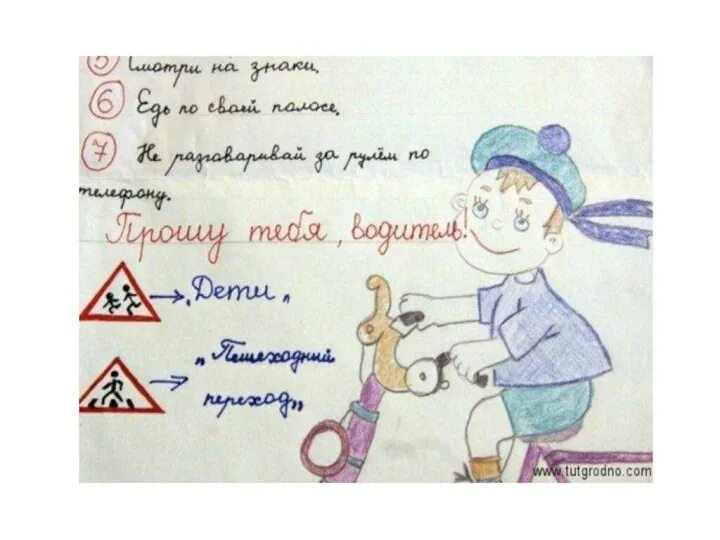 5 Смотри на знаки.
6 Едь по своей полосе.
7 Не разговаривай за рулём по
телефону.
Прошу тебя, водитель!
→ „Дети„
→ „Пешеходний
переход„
www.tutgrodno.com